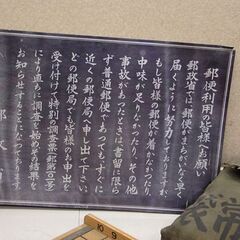 郵便利用の皆様へお願い
郵政省では、郵便がまちがいなく早く
届くように努力しておりますが、
もし皆様の郵便が着かなかったり、
中味が足りなかったり、その他
事故があったときは書留に限ら
ず普通郵便であってもすぐに
近くの郵便局へ申し出て下さい。
どの郵便局でも皆様のお申出を
受け付けて特別の調査票
により直ちに調査を始めその結果を
お知らせすることになっております。
郵政省